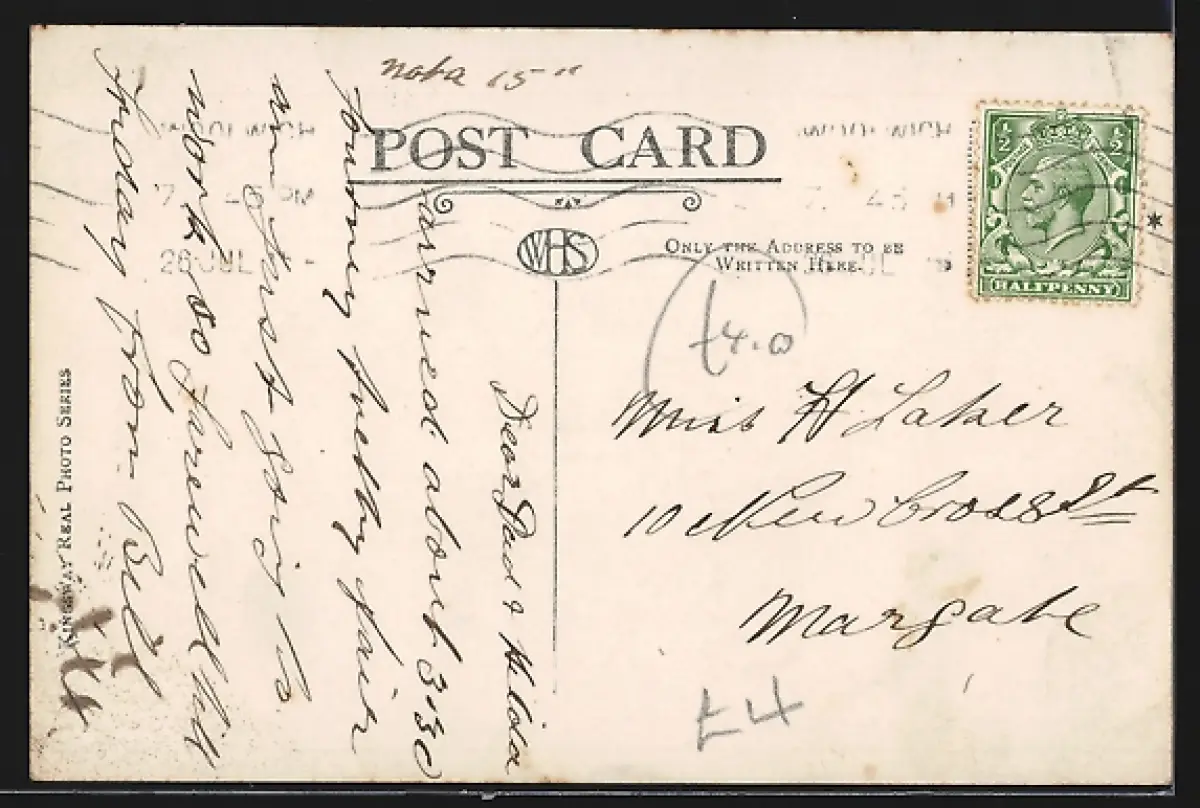 nota 15"
POST CARD
WOOLWICH
7. 45 PM
26 JUL
WHS
ONLY THE ADDRESS TO BE
WRITTEN HERE.
½ ½
HALFPENNY
£4.0
Dear Dad & Hilda
arrived about 3.30
Journey pretty fair
am just going to
work so farewell till
Friday from Bill
Miss H Laker
10 New Cross St
Margate
£4
KINGSWAY REAL PHOTO SERIES